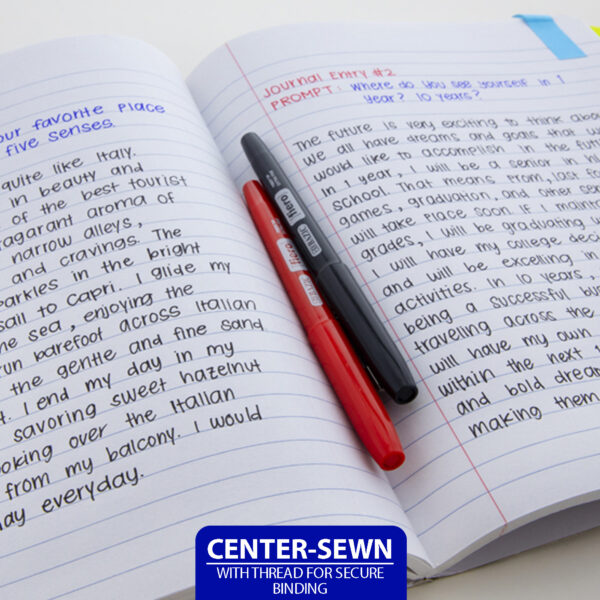 our favorite Place
five senses.
quite like Italy.
in beauty and
of the best tourist
ragarant aroma of
narrow alleys,
and cravings. The
parkles in the bright
sail to Capri. I glide my
he sea, enjoying the
run barefoot across Italian
the gentle and fine sand.
t. I end my day in my
savoring sweet hazelnut
ooking over the Italian
from my balcony. I would
day everyday.
Journal Entry #2
PROMPT: Where do you see yourself in 1
Year? 10 years?
The future is very exciting to think abou
we all have dreams and goals that w
would like to accomplish in the futur
In 1 year, I will be a senior in hi
school. That means prom, last fo
games, graduation, and other se
will take place soon. If I maint
grades, I will be graduating w
I will have my college deci
and will be excelling in
activities. In 10 years,
being a successful bu
traveling across the
will have my own
within the next 1
and bold dream
making them
fiero
fiero
CENTER-SEWN
WITH THREAD FOR SECURE
BINDING